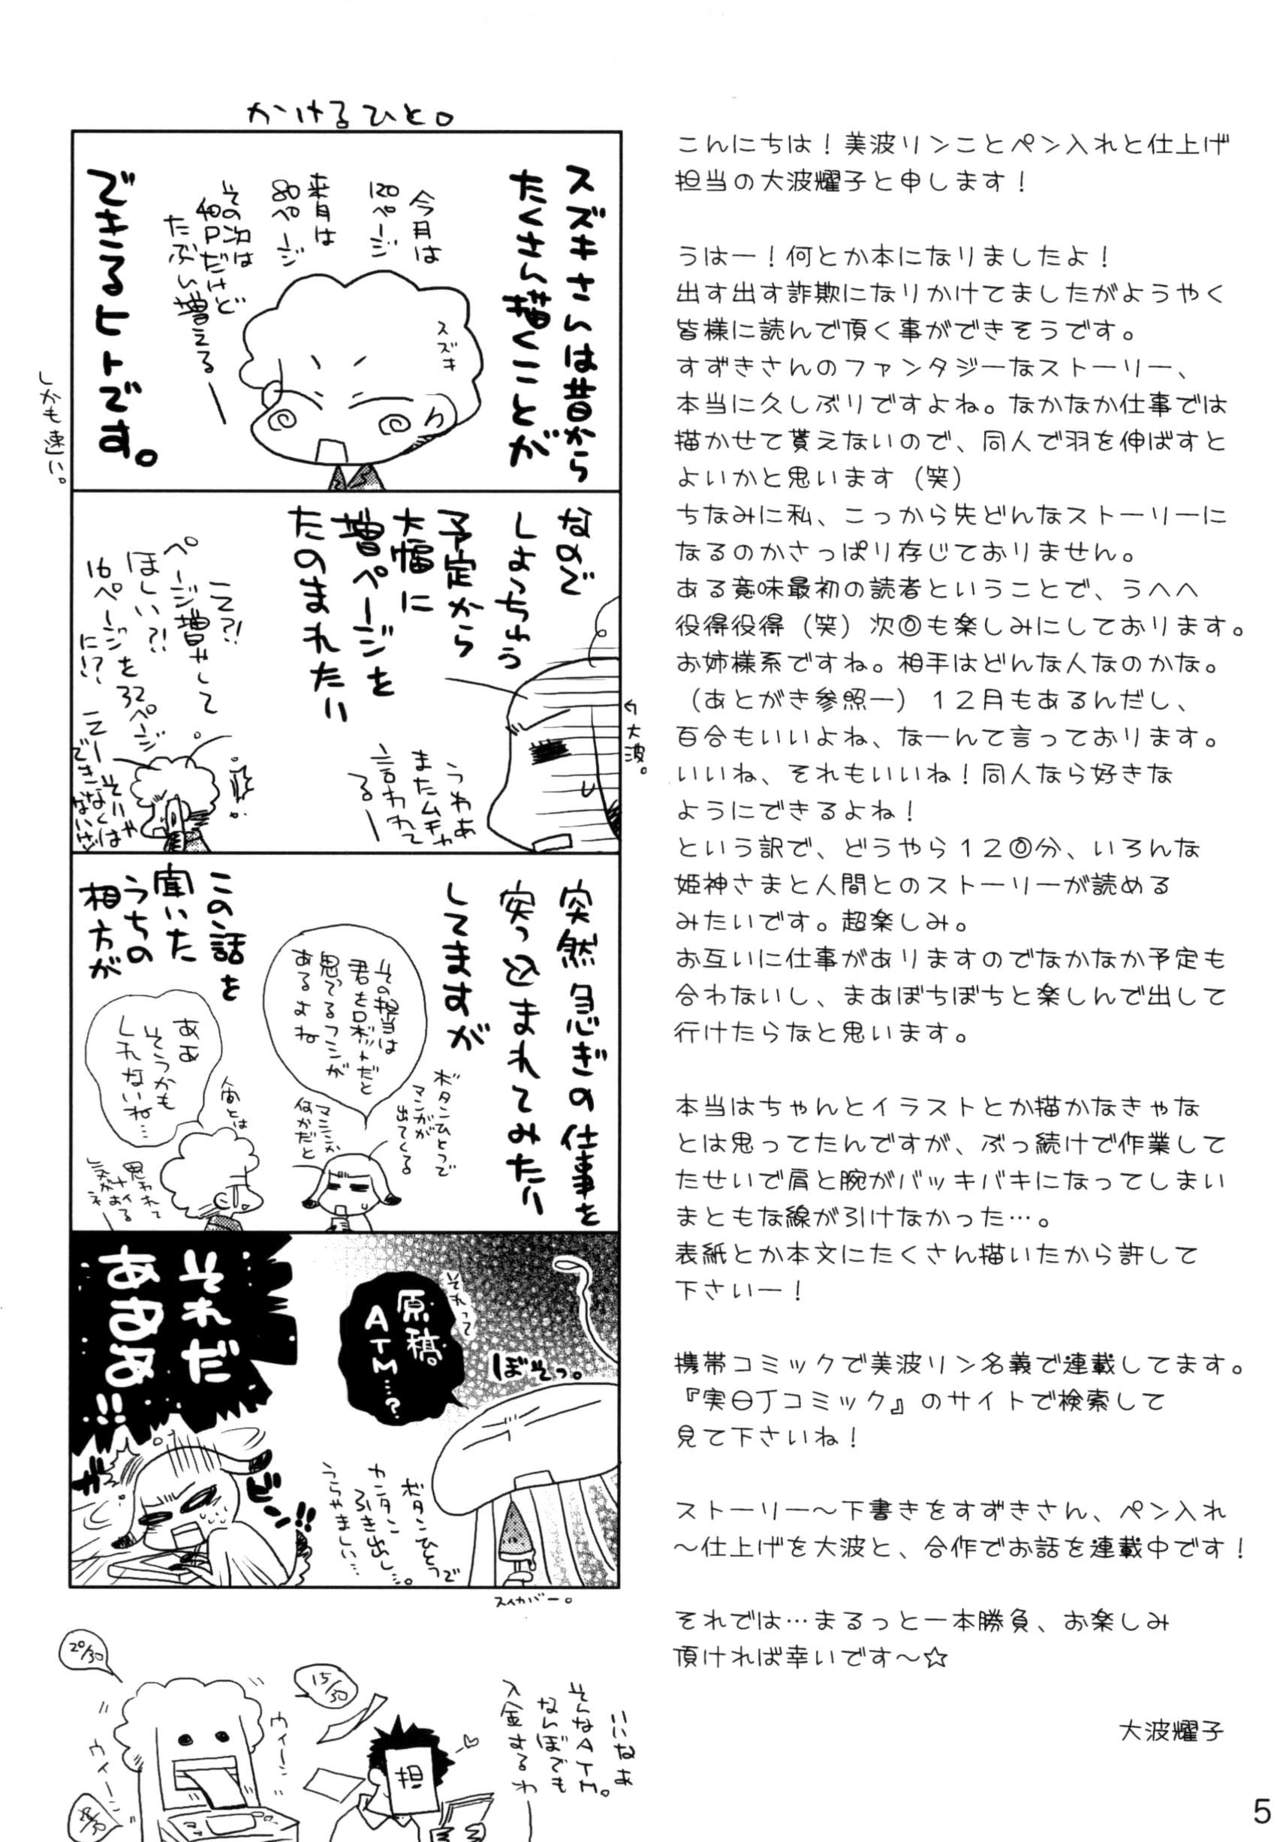 かけるひと。
スズキさんは昔から
たくさん描くことが
できるヒトです。
今月は
120ページ
来月は
80ページ
その次は
40Pだけど
たぶん増える
スズキ
しかも速い。
なので
しょっちゅう
予定から
大幅に
増ページを
たのまれたり
うわぁ
またムチャ
言われて
る
大波。
えっ?!
ページ増やして
ほしい?!
16ページを32ページ
に!?
えー
そりゃ
できなくは
ないけど
突然急ぎの仕事を
突っ込まれてみたり
してますが
この話を
聞いた
うちの
相方が
その担当は
君をロボットだと
思ってるフシが
あるよね
ボタンひとつで
マンガが
出てくる
マシンか
何かだと
ああ
そうかも
しれないね…
人間とは
思われて
ナイ
気がするネ
それって
原稿
ATM…?
ぼそっ。
それだ
あああ!!
ガ
ビン!!
ボタンひとつで
カンタン
ふき出し…。
うらやましい…
スイカバー。
20/30
15/30
ウィーン
ウィーン
担
いいなぁ
そんなATM。
なんぼでも
入金するわ
こんにちは!美波リンことペン入れと仕上げ
担当の大波耀子と申します!
うはー!何とか本になりましたよ!
出す出す詐欺になりかけてましたがようやく
皆様に読んで頂く事ができそうです。
すずきさんのファンタジーなストーリー、
本当に久しぶりですよね。なかなか仕事では
描かせて貰えないので、同人で羽を伸ばすと
よいかと思います(笑)
ちなみに私、こっから先どんなストーリーに
なるのかさっぱり存じておりません。
ある意味最初の読者ということで、うへへ
役得役得(笑)次回も楽しみにしております。
お姉様系ですね。相手はどんな人なのかな。
(あとがき参照ー)12月もあるんだし、
百合もいいよね、なーんて言っております。
いいね、それもいいね!同人なら好きな
ようにできるよね!
という訳で、どうやら12回分、いろんな
姫神さまと人間とのストーリーが読める
みたいです。超楽しみ。
お互いに仕事がありますのでなかなか予定も
合わないし、まあぼちぼちと楽しんで出して
行けたらなと思います。
本当はちゃんとイラストとか描かなきゃな
とは思ってたんですが、ぶっ続けで作業して
たせいで肩と腕がバッキバキになってしまい
まともな線が引けなかった…。
表紙とか本文にたくさん描いたから許して
下さいー!
携帯コミックで美波リン名義で連載してます。
『実日Jコミック』のサイトで検索して
見て下さいね!
ストーリー~下書きをすずきさん、ペン入れ
~仕上げを大波と、合作でお話を連載中です!
それでは…まるっと一本勝負、お楽しみ
頂ければ幸いです~☆
大波耀子
5